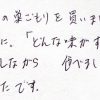 の巣ごもりを買いまし
に、「どんな味がす
しながら 食べまし
たです。